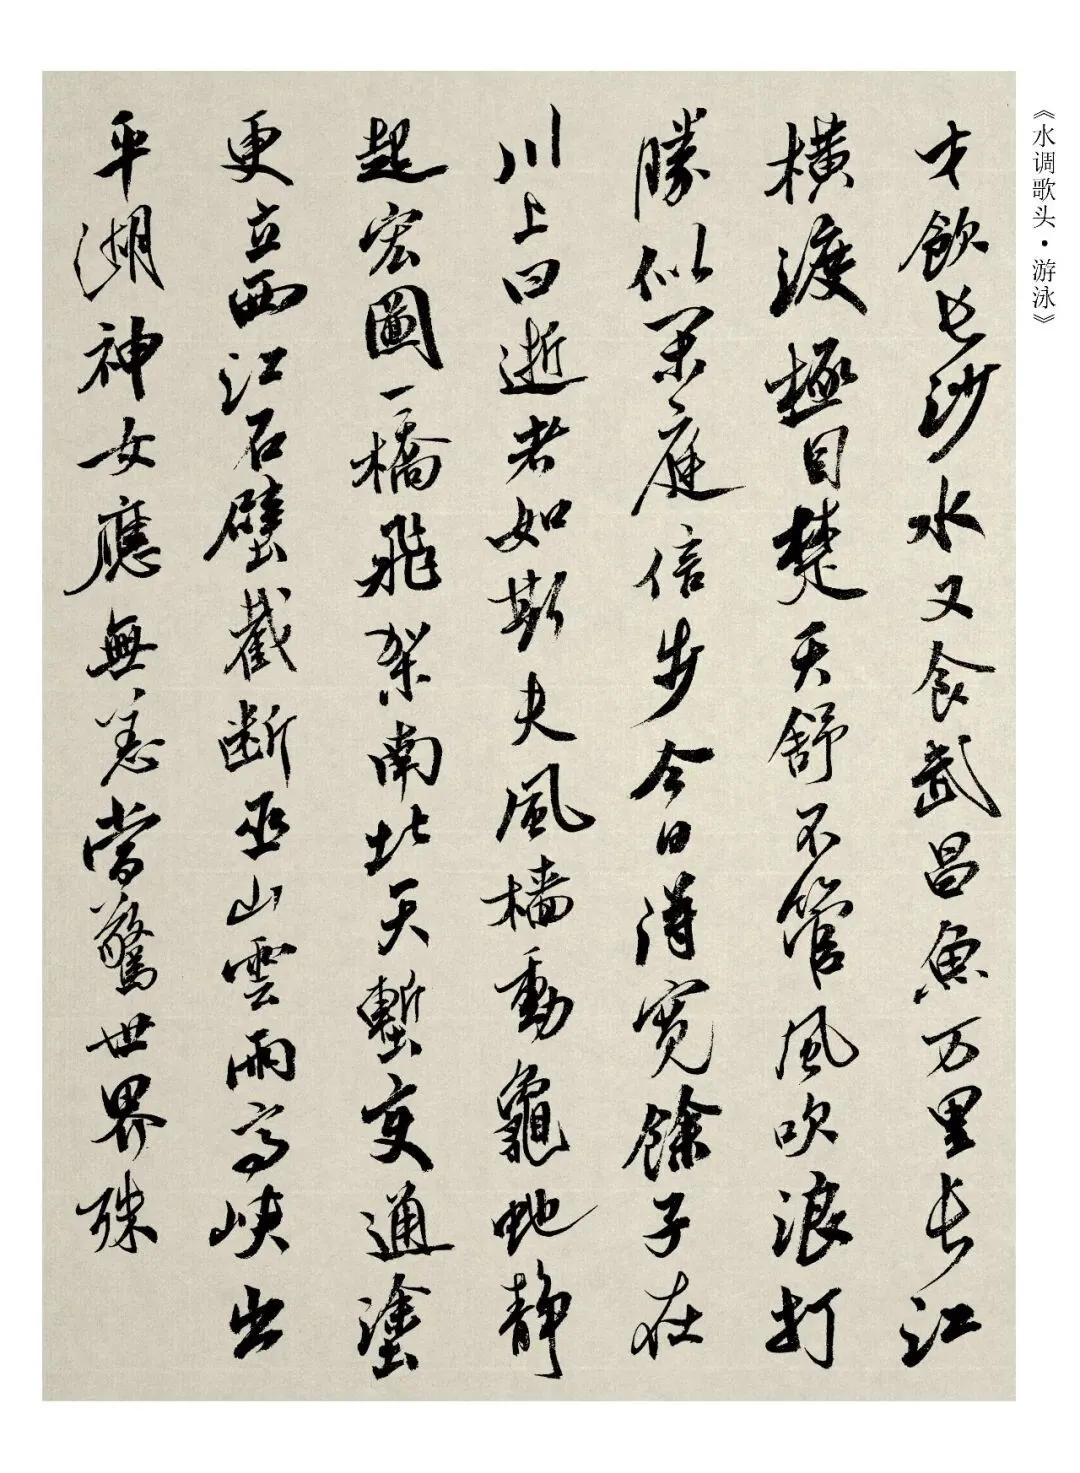 《水调歌头·游泳》
才飲长沙水又食武昌魚万里长江
横渡極目楚天舒不管風吹浪打
勝似閑庭信步今日得宽餘子在
川上曰逝者如斯夫風檣動龜蛇静
起宏圖一橋飛架南北天塹变通塗
更立西江石壁截断巫山雲雨高峡出
平湖神女應無恙當驚世界殊